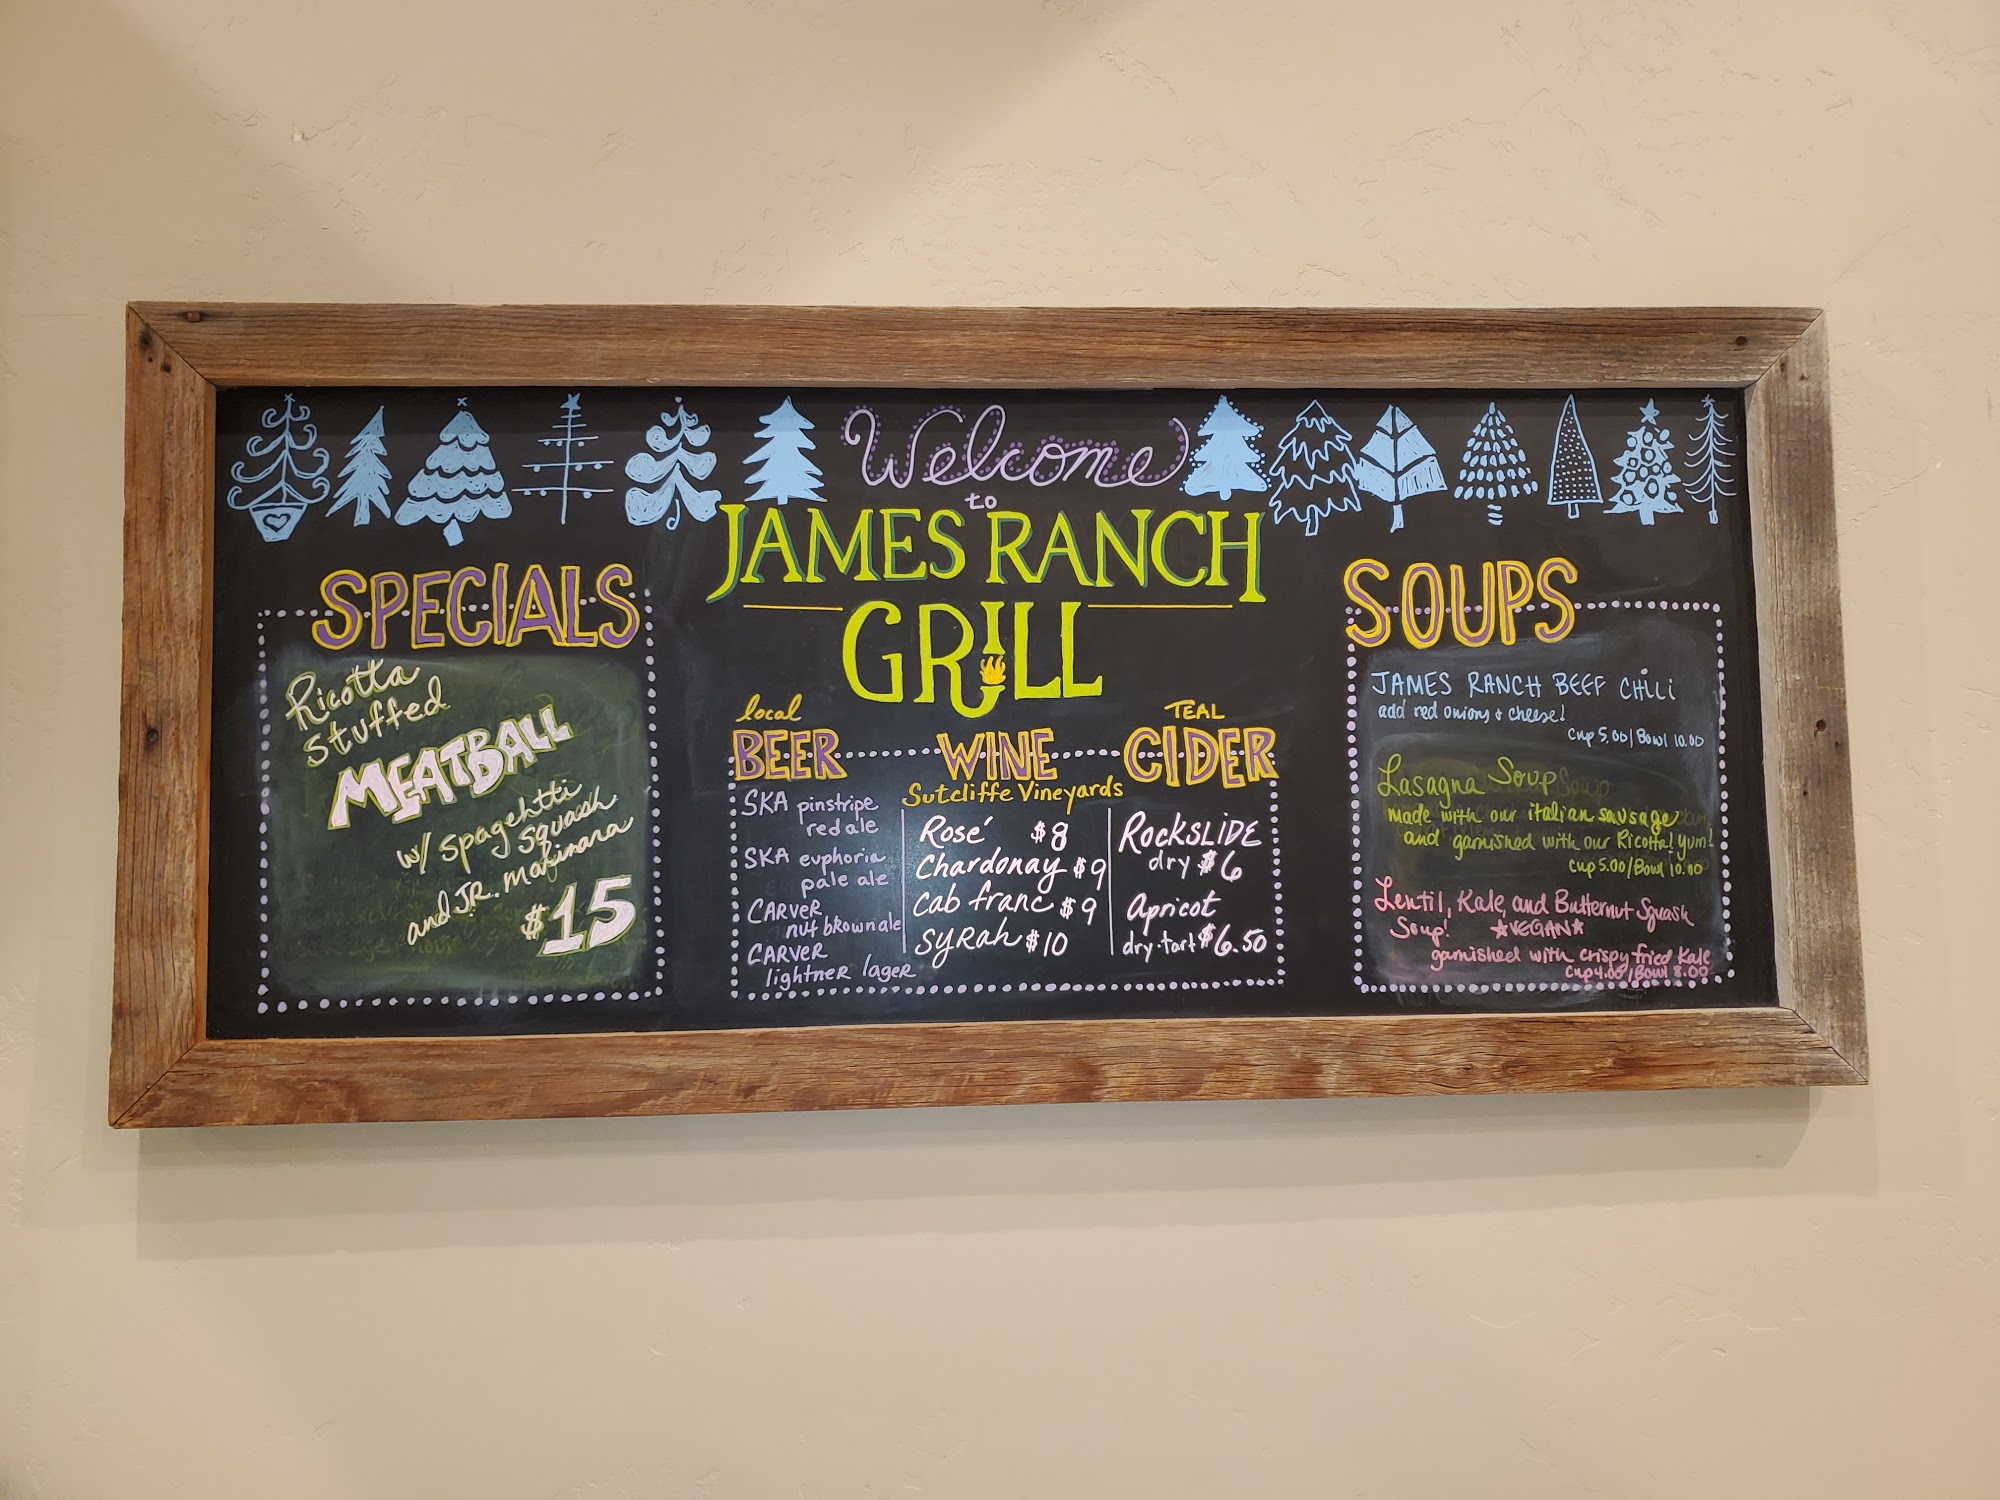 Welcome
to
JAMES RANCH
GRILL
SPECIALS
Ricotta
stuffed
MEATBALL
w/ spagehtti
squash
and JR. marinara
$15
local
BEER
SKA pinstripe
red ale
SKA euphoria
pale ale
CARVER
nut brown ale
CARVER
lightner lager
WINE
Sutcliffe Vineyards
Rosé $8
Chardonay $9
Cab franc $9
Syrah $10
TEAL
CIDER
ROCKSLIDE
dry $6
Apricot
dry-tart $6.50
SOUPS
JAMES RANCH BEEF CHiLi
add red onions & cheese!
Cup 5.00/Bowl 10.00
Lasagna Soup
made with our italian sausage
and garnished with our Ricotta! yum!
Cup 5.00/Bowl 10.00
Lentil, Kale, and Butternut Squash
Soup! *VEGAN*
garnished with crispy fried Kale
Cup 4.00/Bowl 8.00